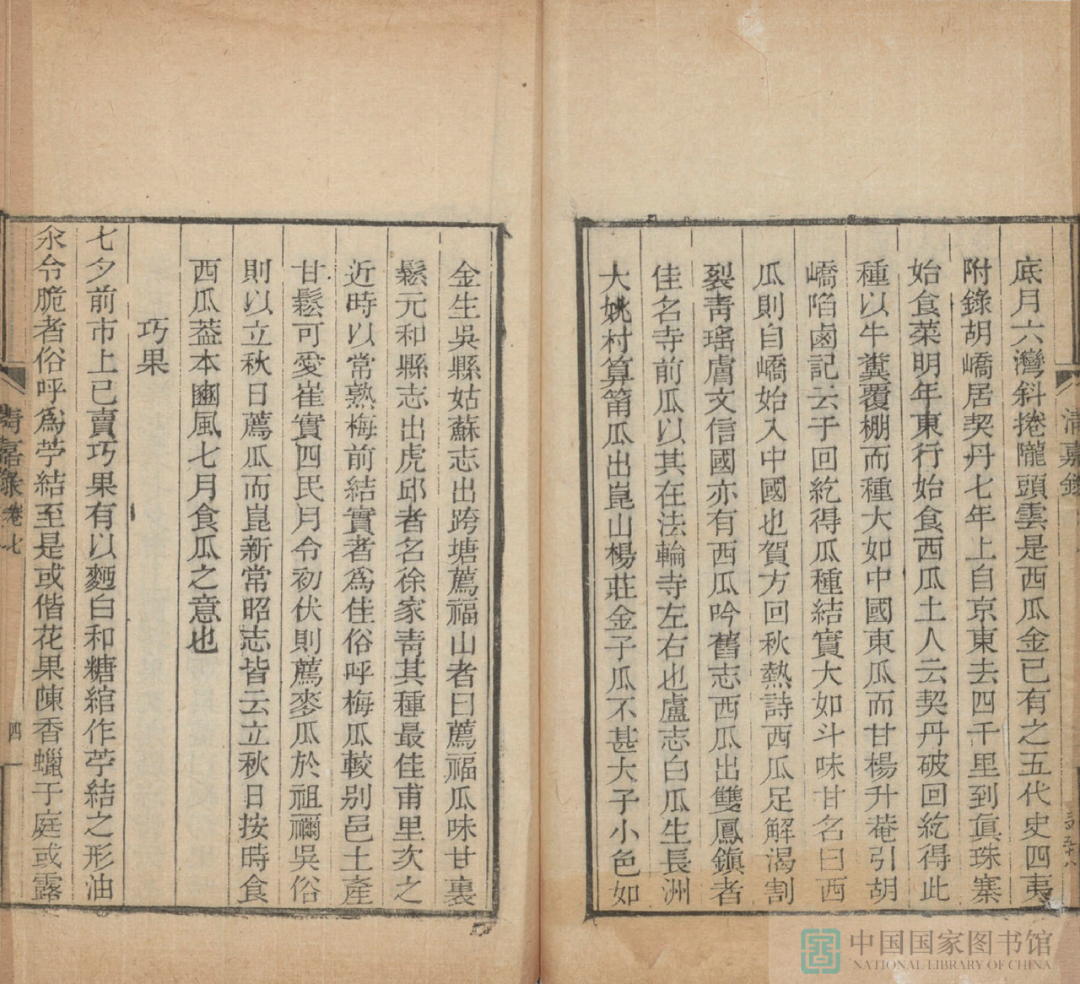 底月六灣斜捲隴頭雲是西瓜金已有之五代史四夷
附錄胡嶠居契丹七年上自京東去四千里到眞珠寨
始食菜明年東行始食西瓜土人云契丹破回紇得此
種以牛糞覆棚而種大如中國東瓜而甘楊升菴引胡
嶠陷鹵記云于回紇得瓜種結實大如斗味甘名曰西
瓜則自嶠始入中國也賀方回秋熱詩西瓜足解渴割
裂靑瑤膚文信國亦有西瓜吟舊志西瓜出雙鳳鎭者
佳名寺前瓜以其在法輪寺左右也盧志白瓜生長洲
大姚村算筩瓜出崑山楊莊金子瓜不甚大子小色如
金生吳縣姑蘇志出跨塘薦福山者曰薦福瓜味甘裏
鬆元和縣志出虎邱者名徐家靑其種最佳甫里次之
近時以常熟梅前結實者爲佳俗呼梅瓜較别邑土產
甘鬆可愛崔實四民月令初伏則薦麥瓜於祖禰吳俗
則以立秋日薦瓜而崑新常昭志皆云立秋日按時食
西瓜葢本豳風七月食瓜之意也
巧果
七夕前市上已賣巧果有以麪白和糖綰作苧結之形油
汆令脆者俗呼爲苧結至是或偕花果陳香蠟于庭或露
清嘉錄
清嘉錄卷七
四
中国国家图书馆
NATIONAL LIBRARY OF CHINA